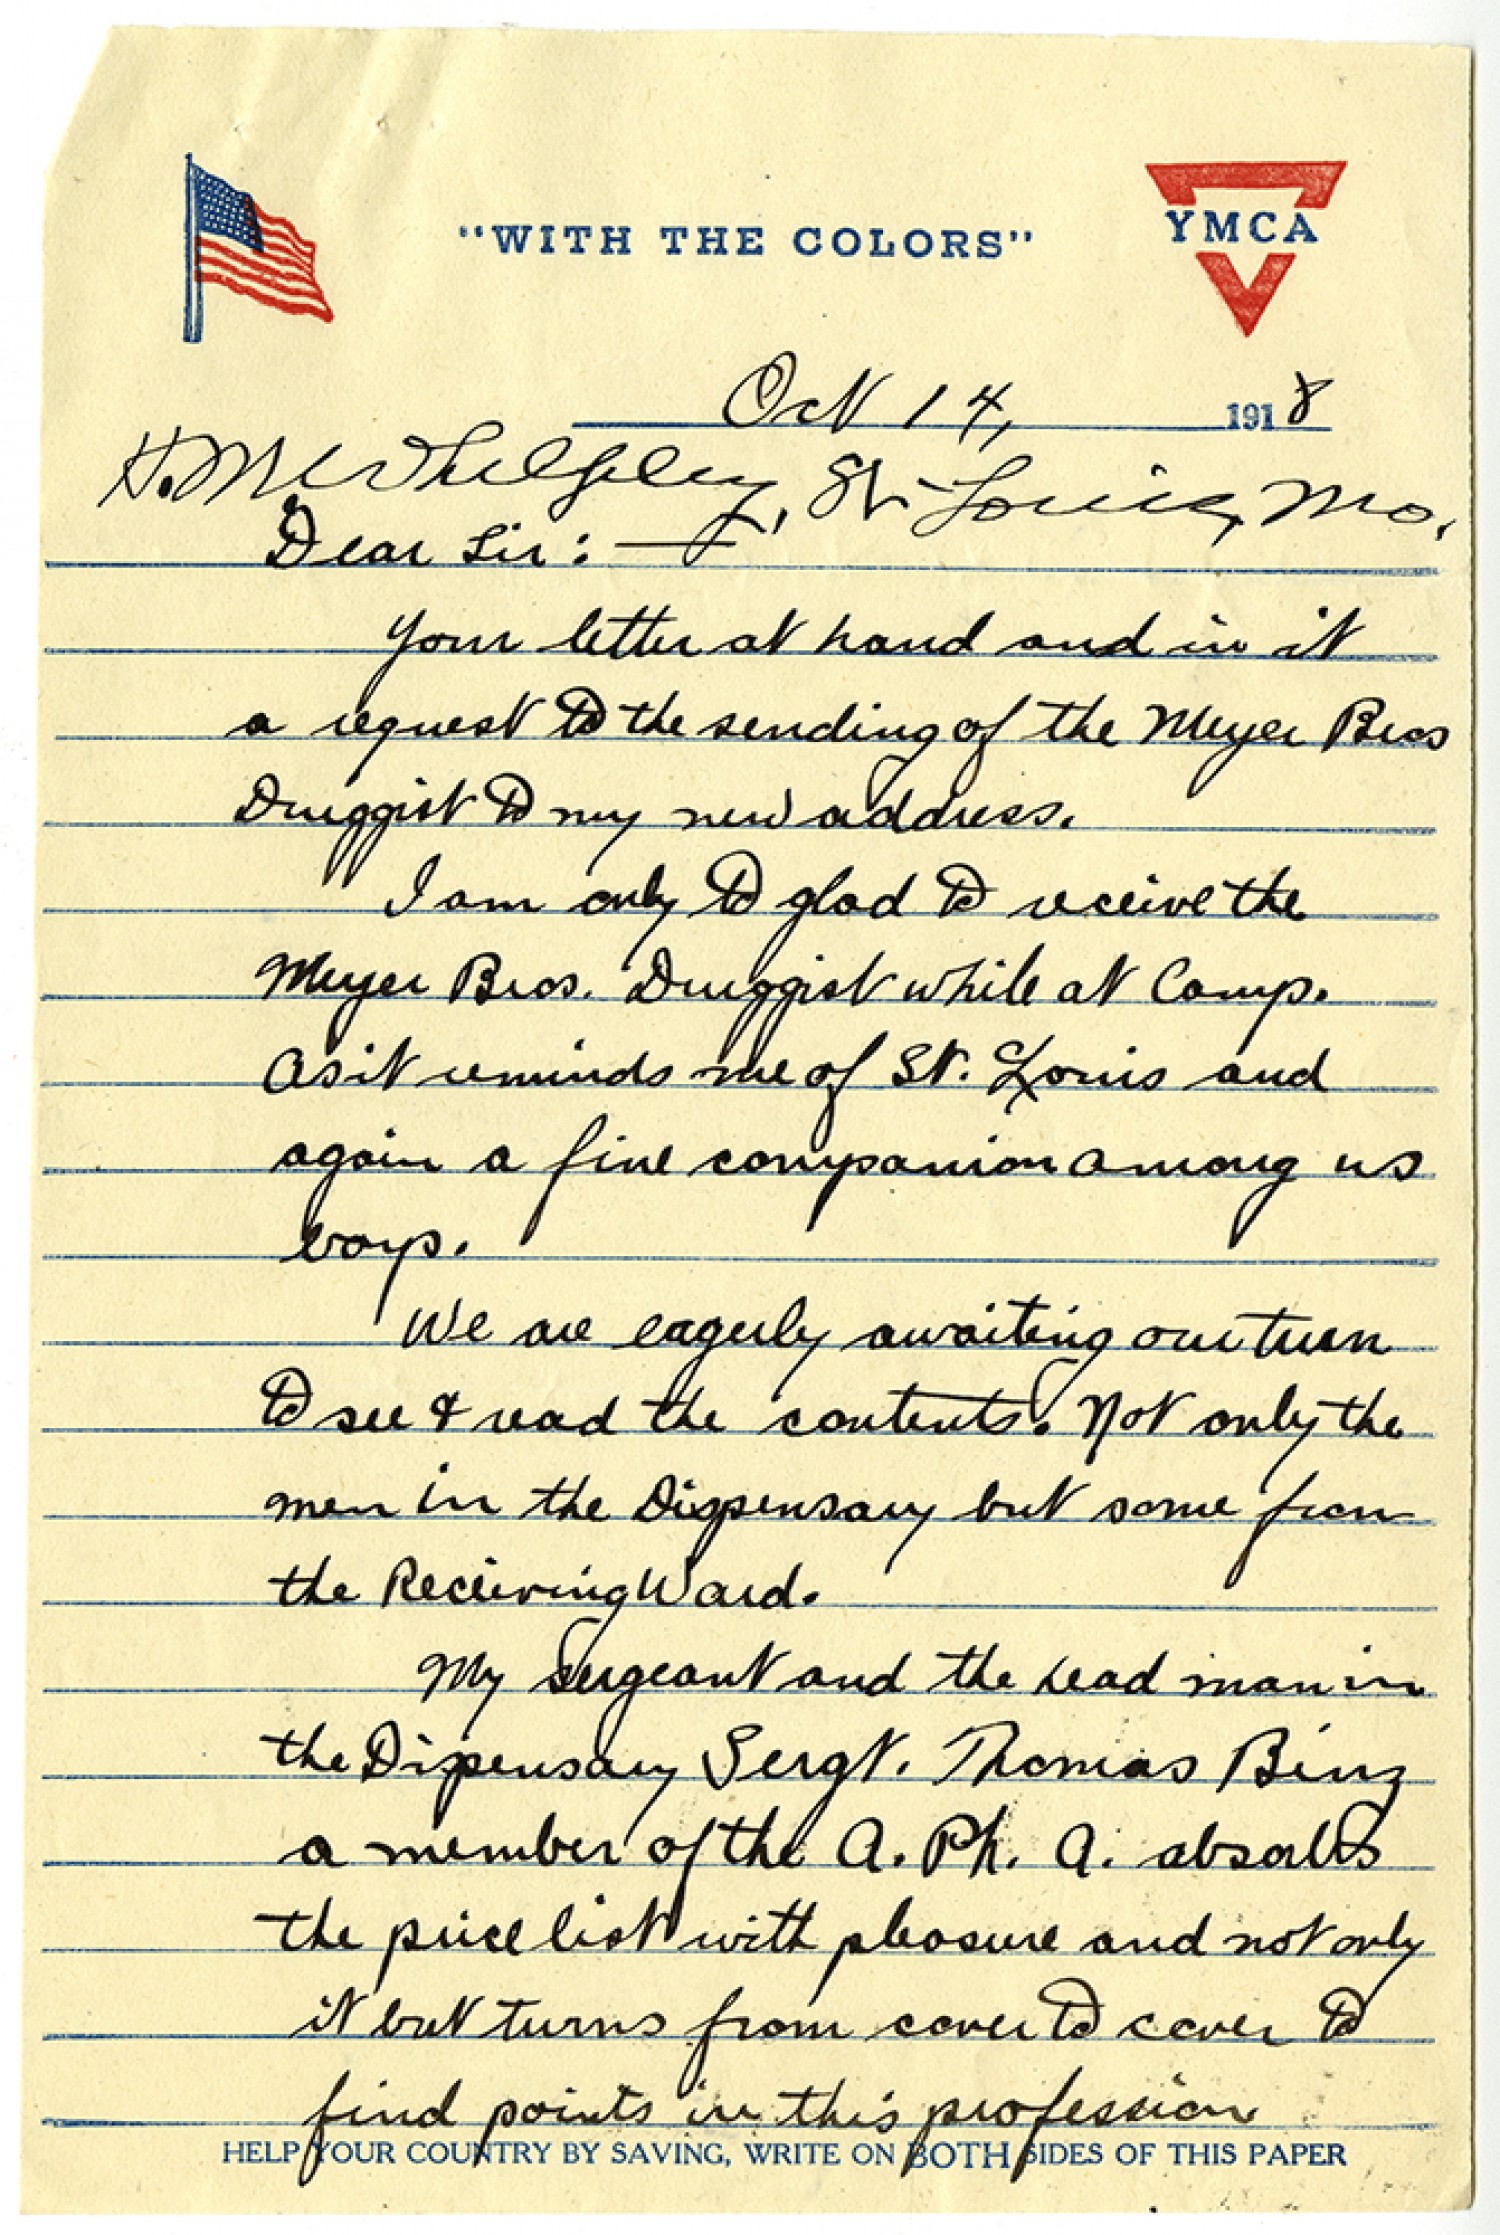 "WITH THE COLORS"
YMCA
Oct 14, 1918
H. M. Whelpley, St. Louis, Mo.
Dear Sir:
Your letter at hand and in it
a request to the sending of the Meyer Bros
Druggist to my new address.
I am only to glad to receive the
Meyer Bros. Druggist while at Camp.
As it reminds me of St. Louis and
again a fine companion among us
boys.
We are eagerly awaiting our turn
to see & read the contents. Not only the
men in the Dispensary but some from
the Recieving Ward.
My Sergeant and the head man in
the Dispensary Sergt. Thomas Binz
a member of the A. Ph. A. absorbs
the price list with pleasure and not only
it but turns from cover to cover to
find points in this profession
HELP YOUR COUNTRY BY SAVING, WRITE ON BOTH SIDES OF THIS PAPER